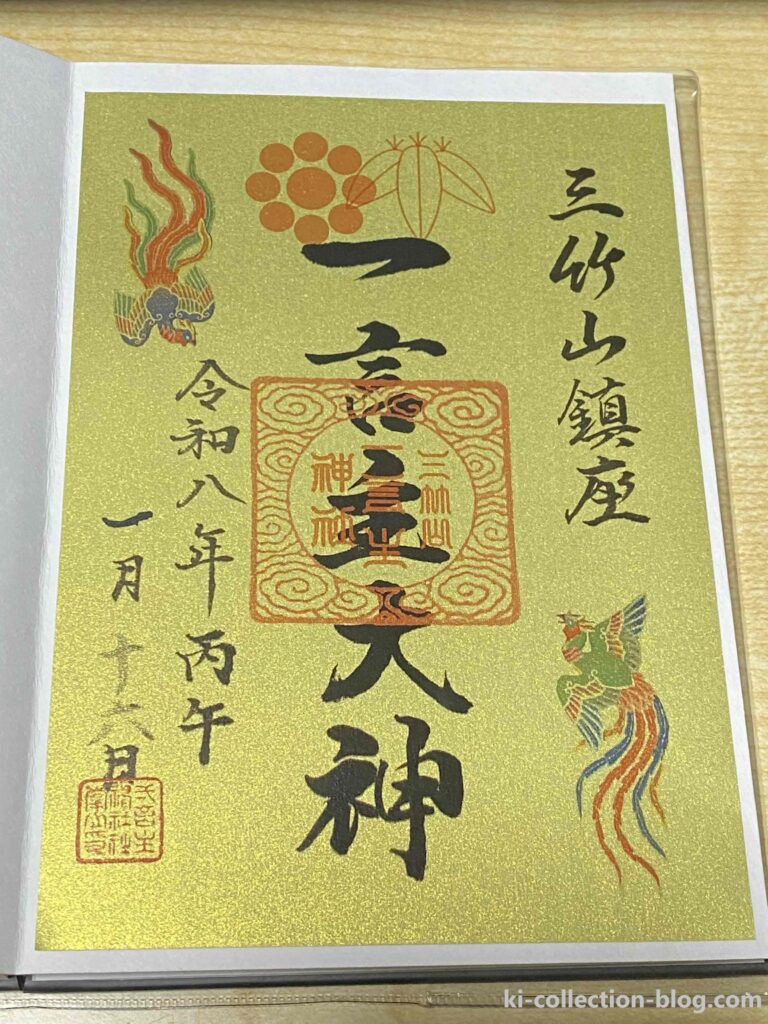 三竹山鎮座
一言主大神
三竹山
一言主
神社
令和八年丙午
一月十六日
ki-collection-blog.com